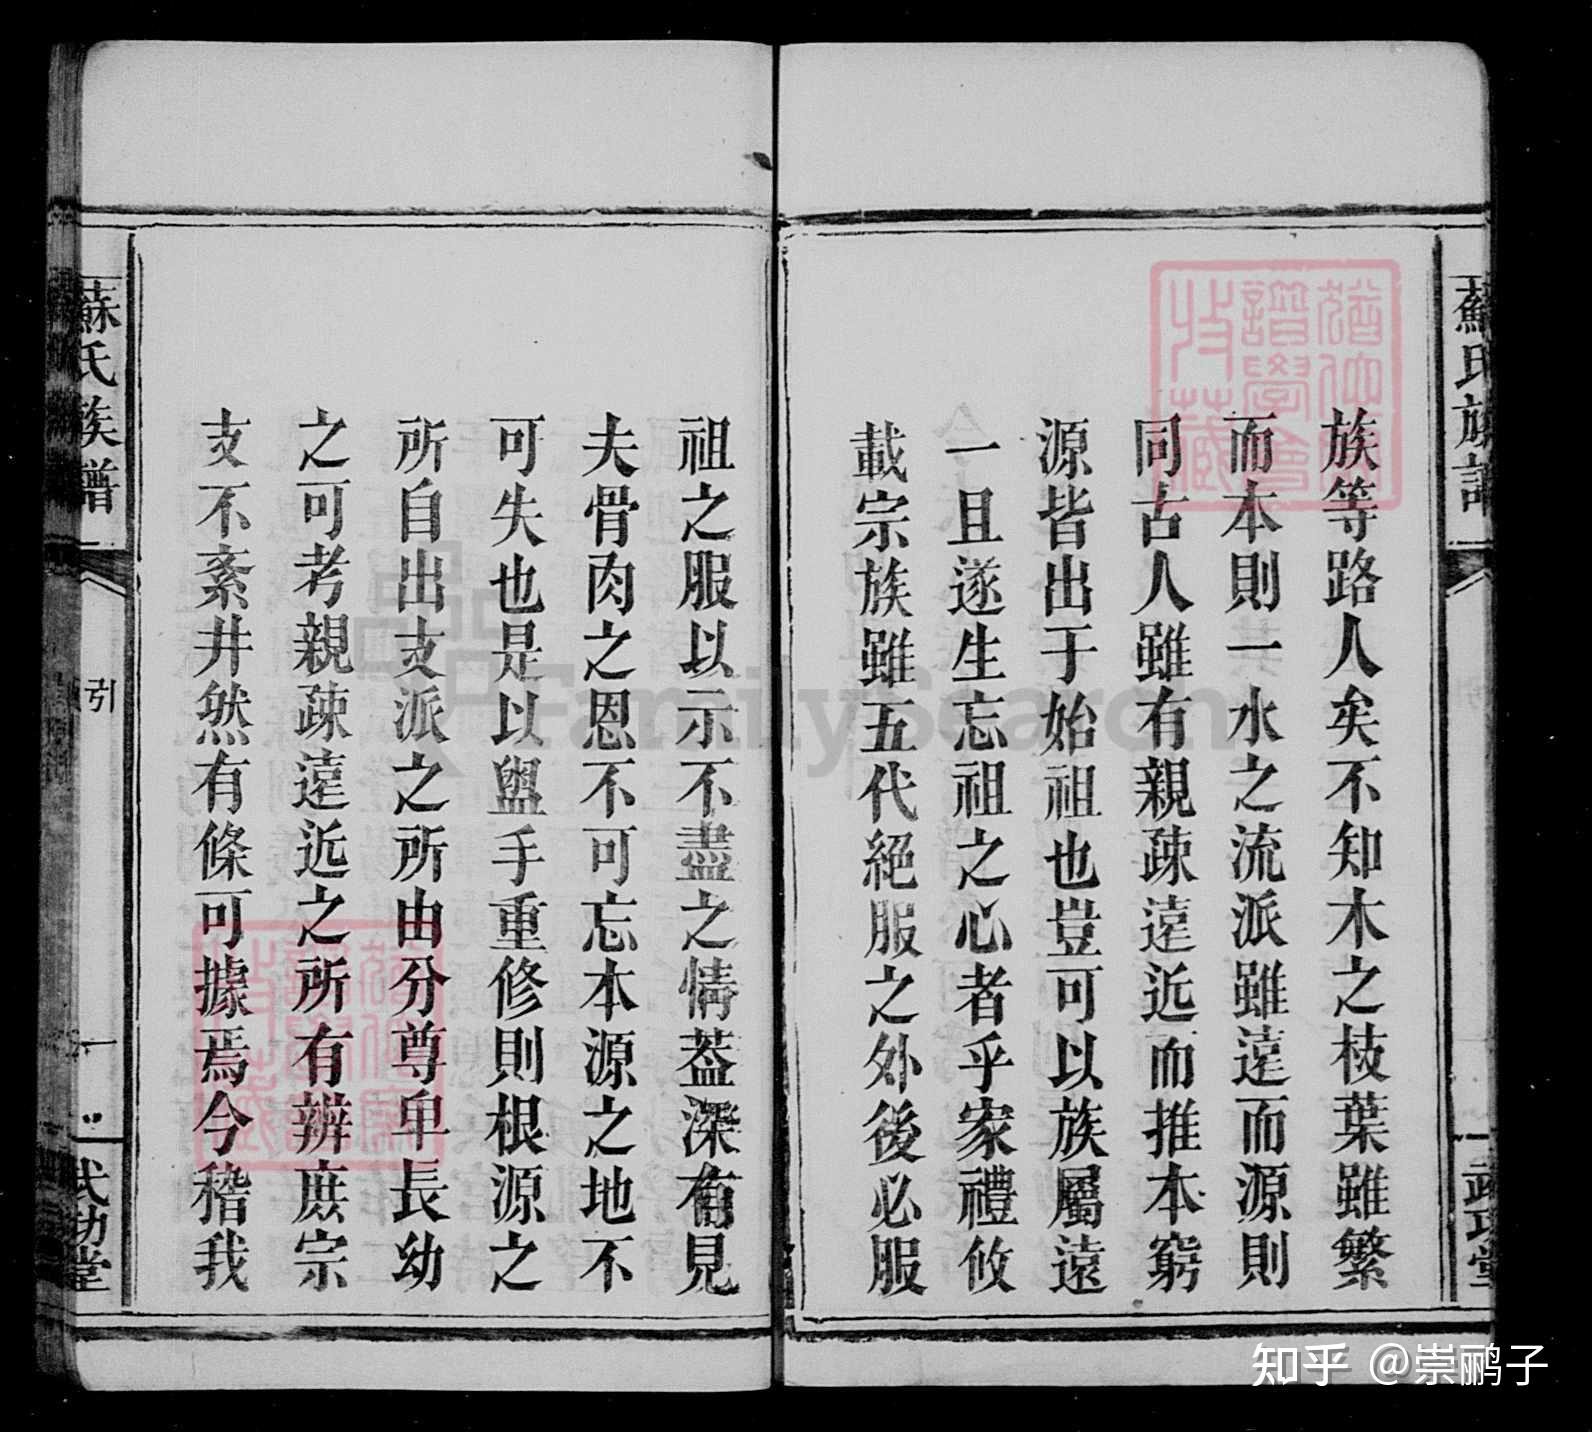 蘇氏族譜
武功堂
族等路人矣不知木之枝葉雖繁
而本則一水之流派雖遠而源則
同古人雖有親疎遠近而推本窮
源皆出于始祖也豈可以族屬遠
一旦遂生忘祖之心者乎家禮攸
載宗族雖五代絕服之外後必服
祖之服以示不盡之情葢深有見
夫骨肉之恩不可忘本源之地不
可失也是以盥手重修則根源之
所自出支派之所由分尊卑長幼
之可考親疎遠近之所有辨庶宗
支不紊井然有條可據焉今稽我
蘇氏族譜
引
一
武功堂
FamilySearch
譜學會
收藏
知乎 @崇鹂子